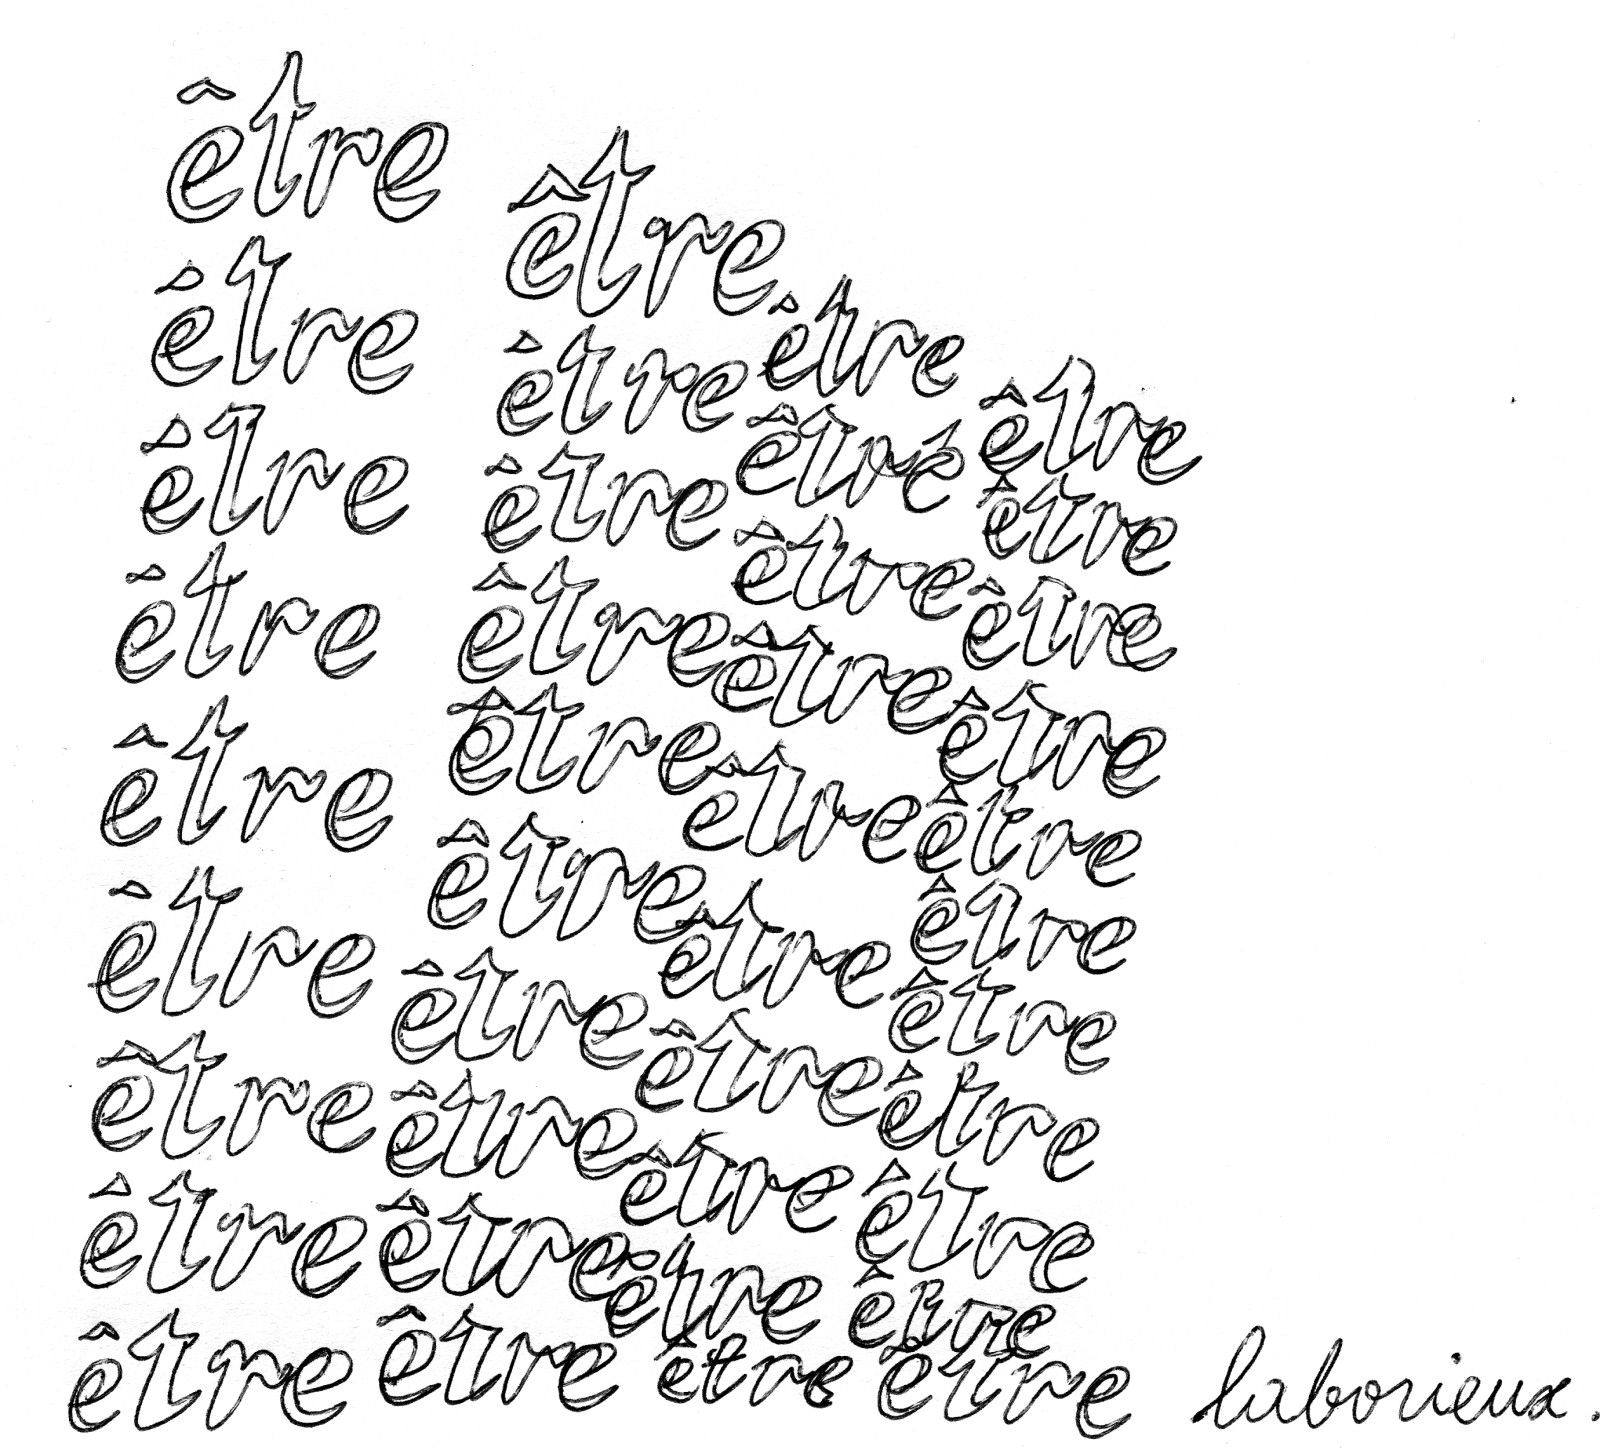 être
être être être
être être être être
être être être être
être être être être
être être être être
être être être être
être être être être
être être être être
être être être être
être être être être laborieux.